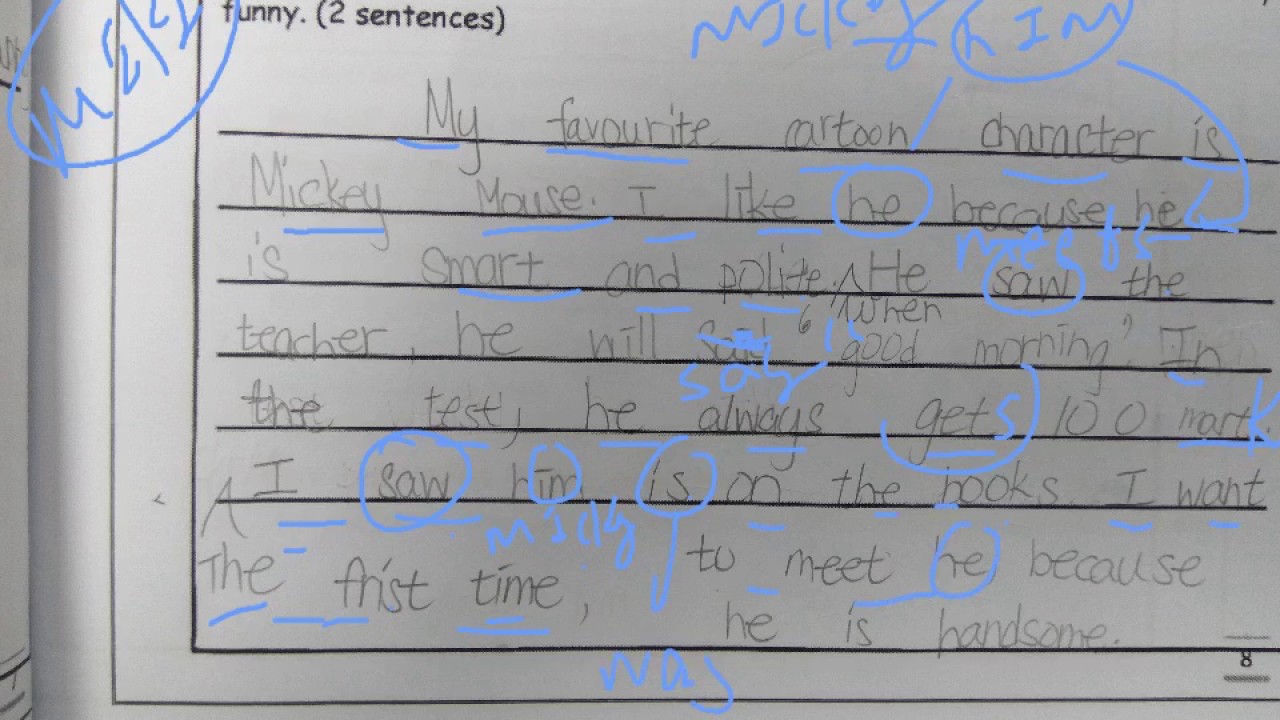 funny. (2 sentences)
Micky him
My favourite cartoon character is
Mickey Mouse. I like he because he
meets
is smart and polite. He saw the
When
teacher, he will said "good morning" In
say
the test, he always gets 100 mark.
A I saw him is on the books I want
Micky
The frist time, to meet he because
he is handsome.
was
8